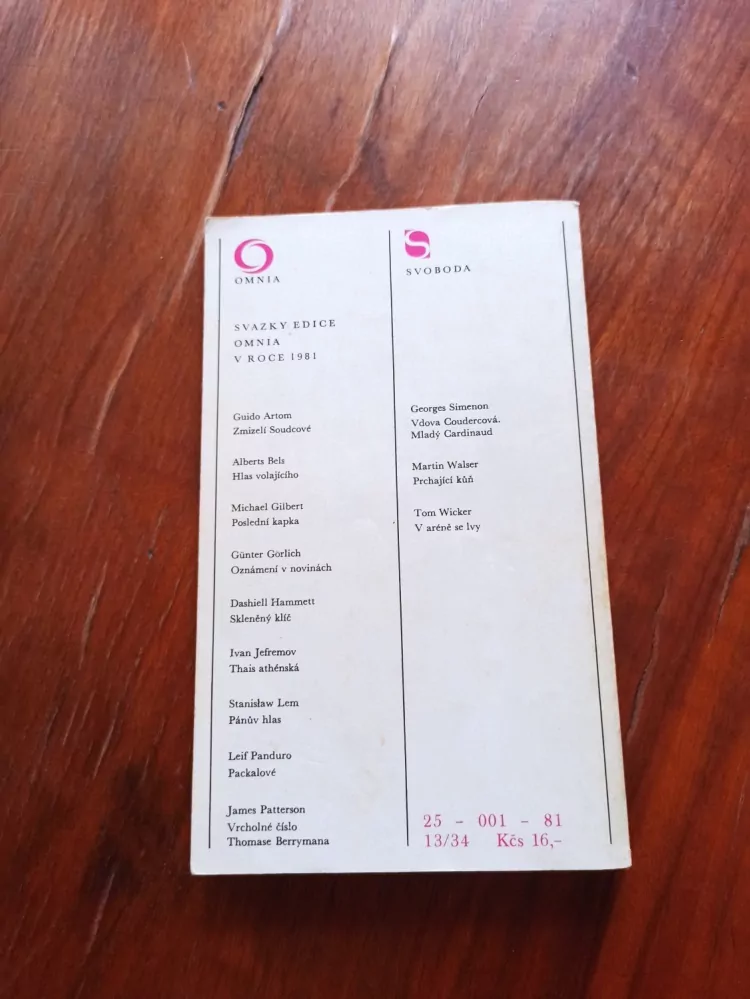 OMNIA
SVAZKY EDICE
OMNIA
V ROCE 1981
Guido Artom
Zmizelí Soudcové
Alberts Bels
Hlas volajícího
Michael Gilbert
Poslední kapka
Günter Görlich
Oznámení v novinách
Dashiell Hammett
Skleněný klíč
Ivan Jefremov
Thais athénská
Stanisław Lem
Pánův hlas
Leif Panduro
Packalové
James Patterson
Vrcholné číslo
Thomase Berrymana
S
SVOBODA
Georges Simenon
Vdova Coudercová.
Mladý Cardinaud
Martin Walser
Prchající kůň
Tom Wicker
V aréně se lvy
25 - 001 - 81
13/34 Kčs 16,-